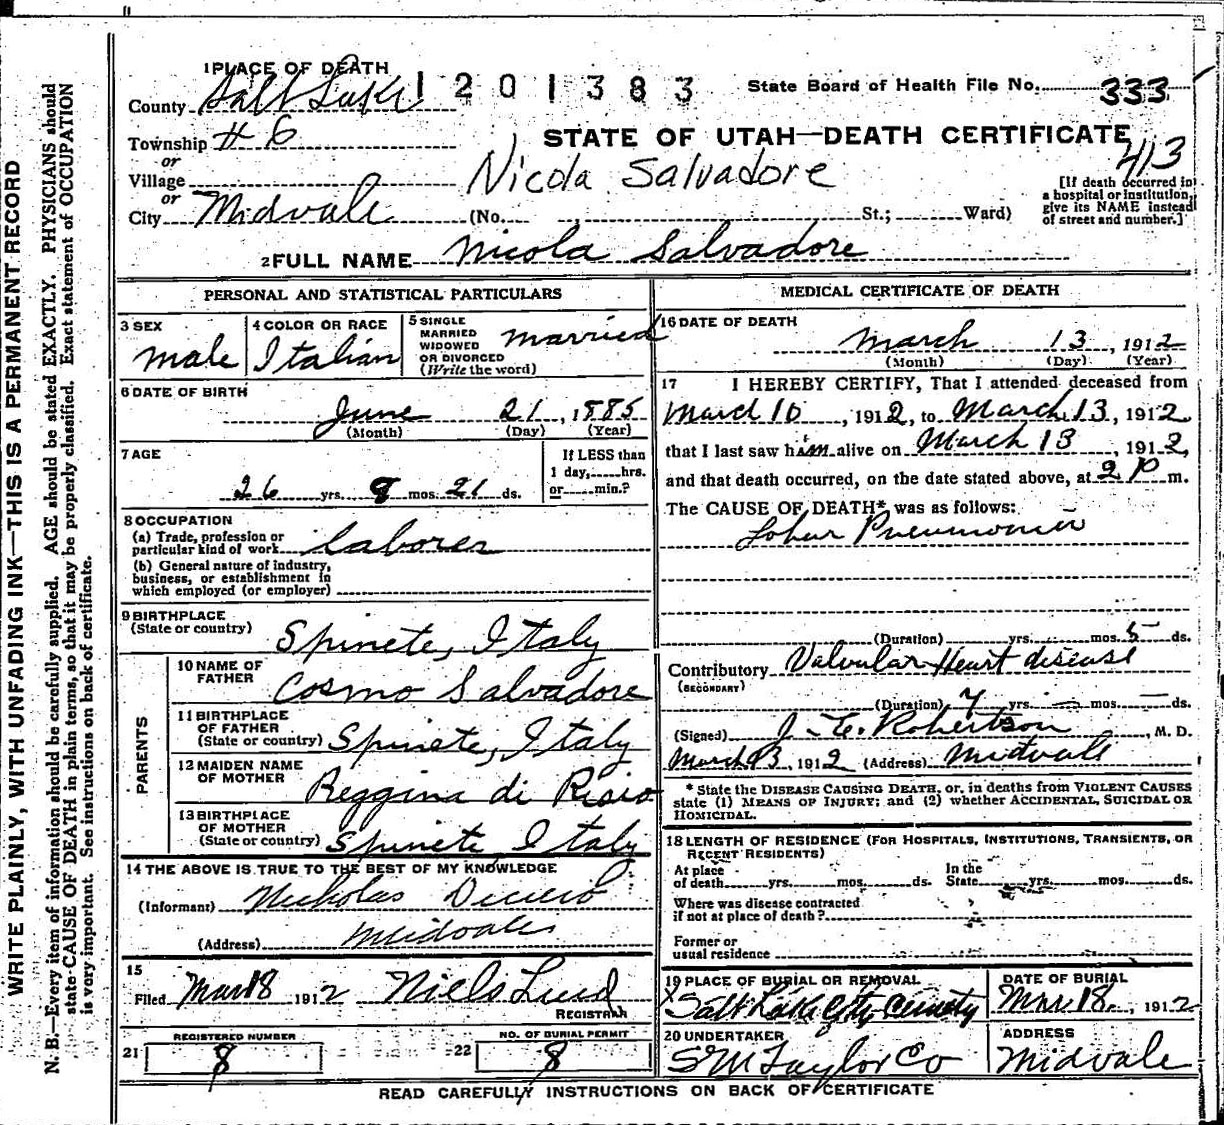 1 PLACE OF DEATH
1201383
State Board of Health File No. 333
County Salt Lake
Township # 6
STATE OF UTAH—DEATH CERTIFICATE
413
or
Village
Nicola Salvadore
or
City Midvale (No. , St.; Ward)
[If death occurred in
a hospital or institution,
give its NAME instead
of street and number.]
2 FULL NAME Nicola Salvadore
PERSONAL AND STATISTICAL PARTICULARS
3 SEX
male
4 COLOR OR RACE
Italian
5 SINGLE
MARRIED
WIDOWED
OR DIVORCED
(Write the word)
married
6 DATE OF BIRTH
June 21, 1885
(Month) (Day) (Year)
7 AGE
26 yrs. 8 mos. 21 ds.
If LESS than
1 day, hrs.
or min.?
8 OCCUPATION
(a) Trade, profession or
particular kind of work laborer
(b) General nature of industry,
business, or establishment in
which employed (or employer)
9 BIRTHPLACE
(State or country) Spinete, Italy
PARENTS
10 NAME OF
FATHER Cosmo Salvadore
11 BIRTHPLACE
OF FATHER
(State or country) Spinete, Italy
12 MAIDEN NAME
OF MOTHER Reggina di Risio
13 BIRTHPLACE
OF MOTHER
(State or country) Spinete Italy
14 THE ABOVE IS TRUE TO THE BEST OF MY KNOWLEDGE
(Informant) Nicholas
(Address) Midvale
15
Filed Mar 18 1912 Niels Lind
REGISTRAR
REGISTERED NUMBER
21 8
NO. OF BURIAL PERMIT
22 8
MEDICAL CERTIFICATE OF DEATH
16 DATE OF DEATH
March 13, 1912
(Month) (Day) (Year)
17 I HEREBY CERTIFY, That I attended deceased from
March 10, 1912, to March 13, 1912
that I last saw him alive on March 13, 1912,
and that death occurred, on the date stated above, at 2 P m.
The CAUSE OF DEATH* was as follows:
Lobar Pneumonia
(Duration) yrs. mos. 5 ds.
Contributory Valvular Heart disease
(SECONDARY)
(Duration) 7 yrs. — mos. — ds.
(Signed) J. E. Robertson, M. D.
March 13, 1912 (Address) Midvale
* State the DISEASE CAUSING DEATH, or, in deaths from VIOLENT CAUSES
state (1) MEANS OF INJURY; and (2) whether ACCIDENTAL, SUICIDAL OR
HOMICIDAL.
18 LENGTH OF RESIDENCE (FOR HOSPITALS, INSTITUTIONS, TRANSIENTS, OR
RECENT RESIDENTS)
At place In the
of death yrs. mos. ds. State yrs. mos. ds.
Where was disease contracted
if not at place of death?
Former or
usual residence
19 PLACE OF BURIAL OR REMOVAL
Salt Lake City Cemetery
DATE OF BURIAL
Mar 18, 1912
20 UNDERTAKER
S M Taylor Co
ADDRESS
Midvale
READ CAREFULLY INSTRUCTIONS ON BACK OF CERTIFICATE
WRITE PLAINLY, WITH UNFADING INK—THIS IS A PERMANENT RECORD
N. B.—Every item of information should be carefully supplied. AGE should be stated EXACTLY. PHYSICIANS should
state CAUSE OF DEATH in plain terms, so that it may be properly classified. Exact statement of OCCUPATION
is very important. See instructions on back of certificate.